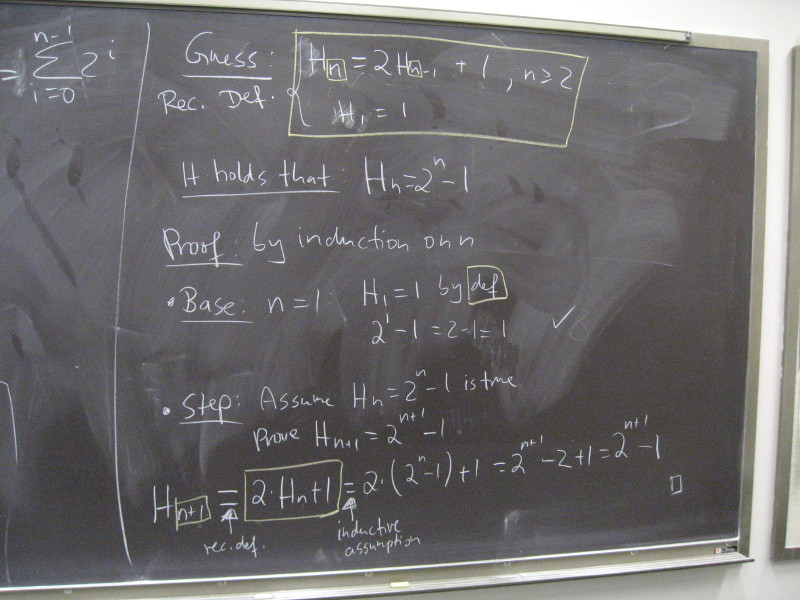 = n-1 ∑ i=0 2^i
Guess:
Rec. Def.
H_n = 2H_n-1 + 1, n ≥ 2
H_1 = 1
It holds that: H_n = 2^n - 1
Proof: by induction on n
• Base: n = 1: H_1 = 1 by def
2^1 - 1 = 2 - 1 = 1 ✓
• Step: Assume H_n = 2^n - 1 is true
Prove H_n+1 = 2^n+1 - 1
H_n+1 = 2·H_n + 1 = 2·(2^n - 1) + 1 = 2^n+1 - 2 + 1 = 2^n+1 - 1 □
rec. def.
inductive
assumption